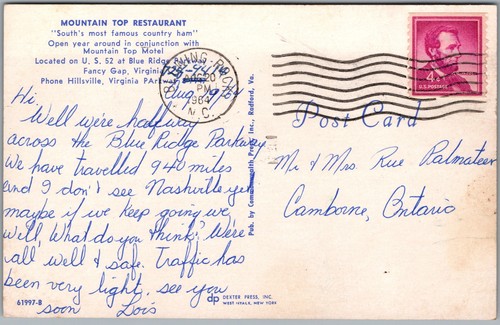 MOUNTAIN TOP RESTAURANT
"South's most famous country ham"
Open year around in conjunction with
Mountain Top Motel
Located on U. S. 52 at Blue Ridge
Fancy Gap, Virginia
Phone Hillsville, Virginia
BLOWING ROCK
PM
1964
N.C.
Aug. 19/64
Hi,
Well were halfway
across the Blue Ridge Parkway
We have travelled 940 miles
and I don't see Nashville yet
maybe if we keep going we
will, What do you think? We're
all well & safe. Traffic has
been very light, see you
soon Lois
61997-B
Pub. by Commonwealth Press, Inc., Radford, Va.
dp DEXTER PRESS, INC.
WEST NYACK, NEW YORK
4¢
U.S. POSTAGE
Post Card
Mr & Mrs. Rue Palmateer
Camborne, Ontario